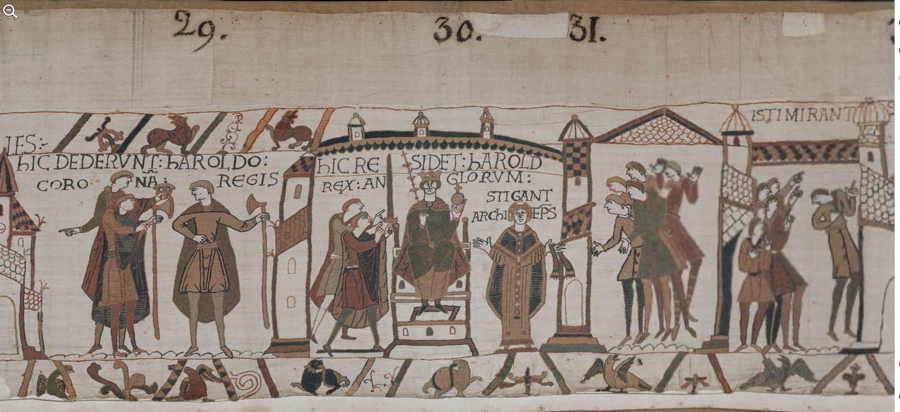 29.
30.
31.
IES:
hIC DEDERVNT: hAROLDO:
CORONA: REGIS
hIC RESIDET: hAROLD
REX: ANGLORVM:
STIGANT
ARChIEPS
ISTI MIRANT